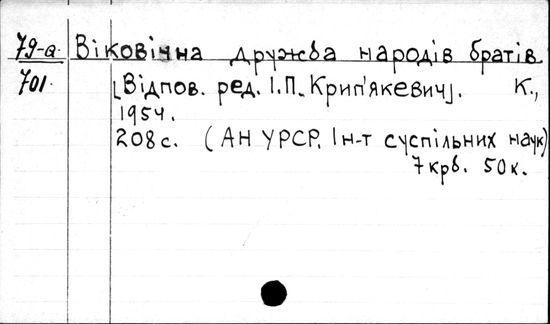 79-а Віковічна дружба народів братів.
701. [Відпов. ред. І.П. Крип'якевич]. К.,
1954.
208с. (АН УРСР. Ін-т суспільних наук)
7крб. 50к.